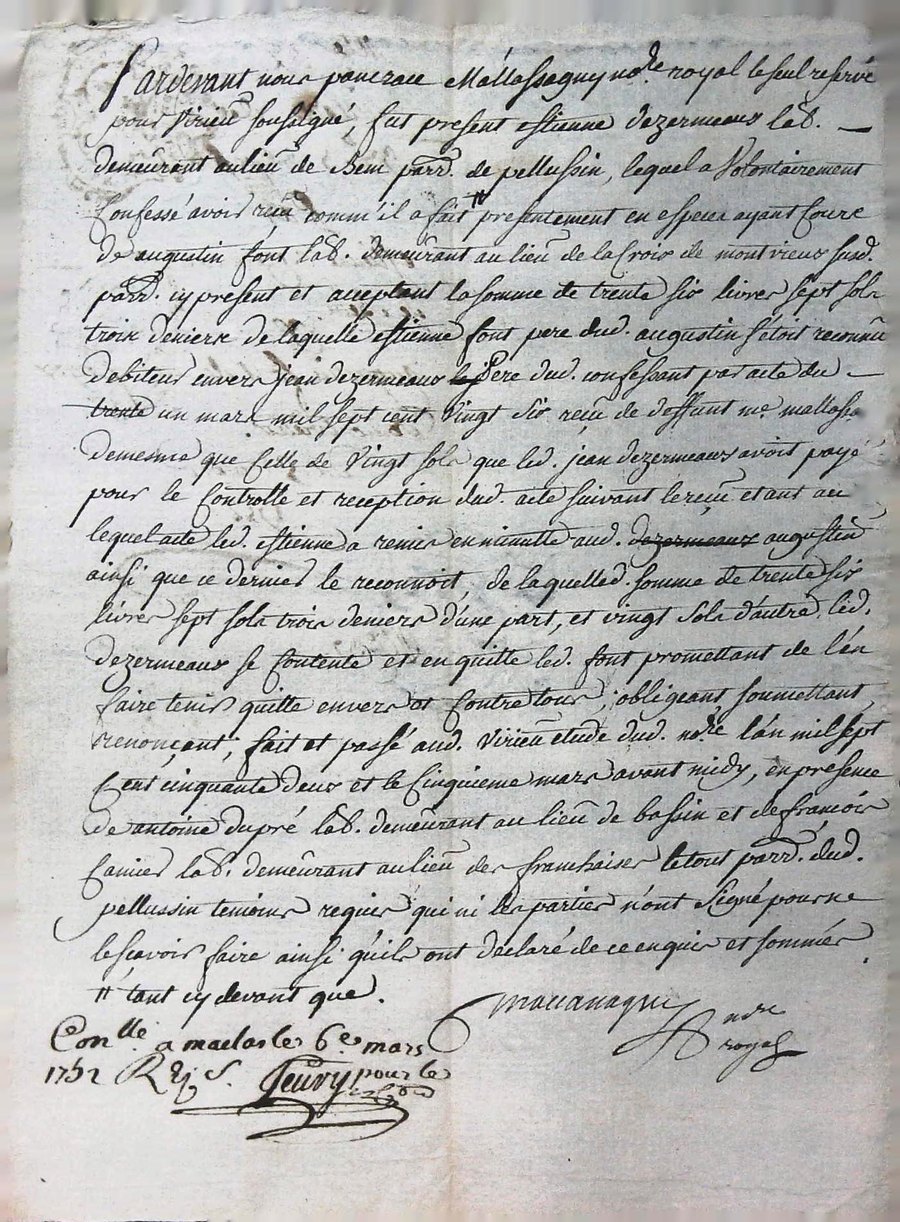 Pardevant nous pancrace Mallassagny no.re royal le seul reservé
pour Virieu soussigné, fut present estienne dezermeaux lab.
demeurant au lieu de Bem parr. de pellussin, lequel a Volontairement
Confessé avoir reçu comm'il a fait # presentement en especes ayant Cours
de augustin font lab. demeurant au lieu de la Crois de montvieux susd.
parr. cy present et acceptant la somme de trente six livres sept sols
trois deniers de laquelle estienne font pere dud. augustin s'etoit reconnu
debiteur envers jean dezermeaux le Pere dud. confessant par acte du
trente un mars mil sept cent Vingt six reçu de deffunt me. mallassa
demesme que Celle de Vingt sols que led. jean dezermeaux avoit payé
pour le Controlle et reception dud. acte suivant le reçu etant au
lequel acte led. estienne a remis en minutte aud. dezermeaux augustin
ainsi que ce dernier le reconnoit, de laquelled. somme de trente six
livres sept sols trois deniers d'une part, et vingt sols d'autre led.
dezermeaux se Contente et en quitte led. font promettant de l'en
faire tenir quitte envers et Contre tous, obligeant soumettant,
renonçant, fait et passé aud. Virieu etude dud. no.re l'an mil sept
Cent cinquante deux et le Cinquieme mars avant midy, en presence
de antoine dupré lab. demeurant au lieu de bassin et de françois
lab. demeurant au lieu des franchises le tout parr. dud.
pellussin temoins requis qui ni les parties n'ont Signé pour ne
le sçavoir faire ainsi qu'ils ont declaré de ce enquis et sommés
# tant cy devant que.
no.re
royal
Con.llé a maclas le 6e mars
1752 R 2j s. fleury pour le